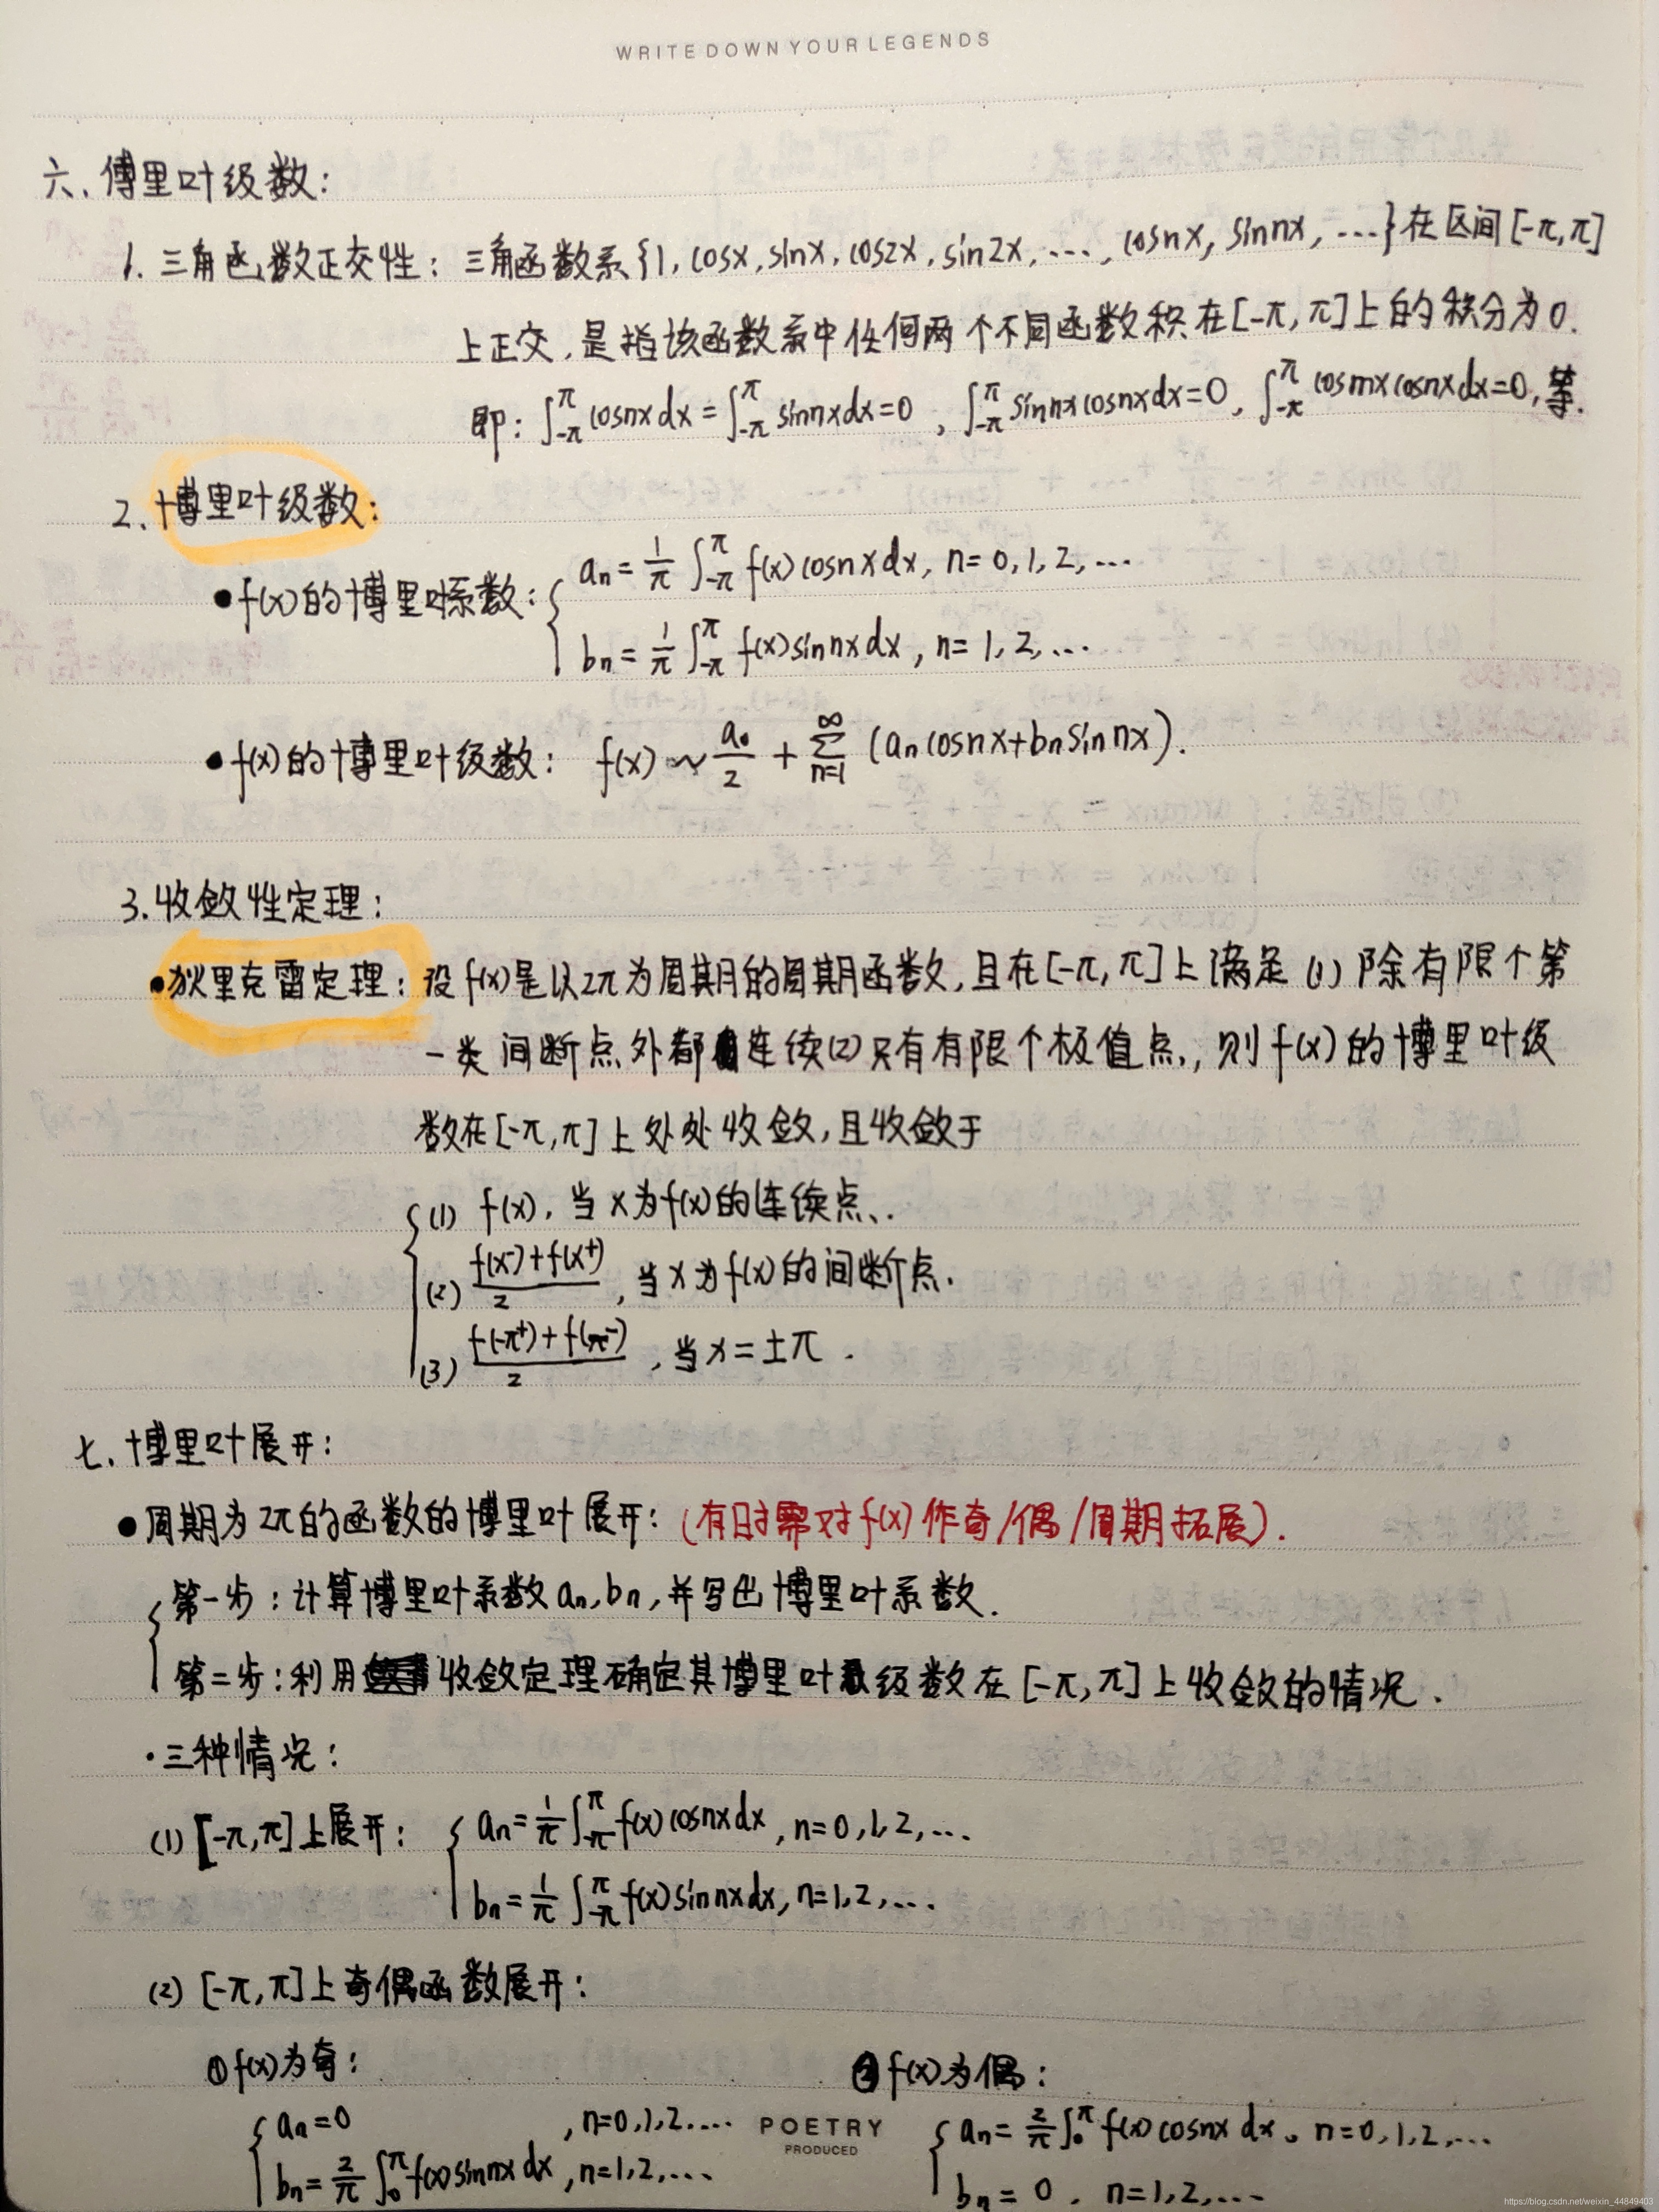 WRITE DOWN YOUR LEGENDS
六、傅里叶级数：
1. 三角函数正交性：三角函数系{1, cosx, sinx, cos2x, sin2x, …, cosnx, sinnx, …}在区间[-π,π]
上正交，是指该函数系中任何两个不同函数积在[-π,π]上的积分为0.
即：∫_{-π}^{π} cosnxdx = ∫_{-π}^{π} sinnxdx=0，∫_{-π}^{π} sinnxcosnxdx=0，∫_{-π}^{π} cosmxcosnxdx=0, 等.
2. 博里叶级数：
●f(x)的博里叶系数：{ an = 1/π ∫_{-π}^{π} f(x)cosnxdx, n=0,1,2,…
bn = 1/π ∫_{-π}^{π} f(x)sinnxdx, n=1,2,…
●f(x)的博里叶级数： f(x) ~ a₀/2 + ∑_{n=1}^{∞} (an cosnx+bn sinnx).
3. 收敛性定理：
●狄里克雷定理：设f(x)是以2π为周期的周期函数，且在[-π,π]上满足(1)除有限个第
一类间断点外都连续(2)只有有限个极值点，则f(x)的博里叶级
数在[-π,π]上处处收敛，且收敛于
{ (1) f(x)，当x为f(x)的连续点.
(2) (f(x⁻)+f(x⁺))/2，当x为f(x)的间断点.
(3) (f(-π⁺)+f(π⁻))/2，当x=±π.
七、博里叶展开：
●周期为2π的函数的博里叶展开：(有时需对f(x)作奇/偶/周期拓展).
{ 第一步：计算博里叶系数an,bn,并写出博里叶系数.
第二步：利用收敛定理确定其博里叶级数在[-π,π]上收敛的情况.
·三种情况：
(1) [-π,π]上展开：{ an = 1/π ∫_{-π}^{π} f(x)cosnxdx, n=0,1,2,…
bn = 1/π ∫_{-π}^{π} f(x)sinnxdx, n=1,2,…
(2) [-π,π]上奇偶函数展开：
①f(x)为奇： ②f(x)为偶：
{ an=0 , n=0,1,2.… { an = 2/π ∫_{0}^{π} f(x)cosnxdx, n=0,1,2,…
bn = 2/π ∫_{0}^{π} f(x)sinnxdx, n=1,2,… bn = 0, n=1,2,…
POETRY
PRODUCED
https://blog.csdn.net/weixin_44849403